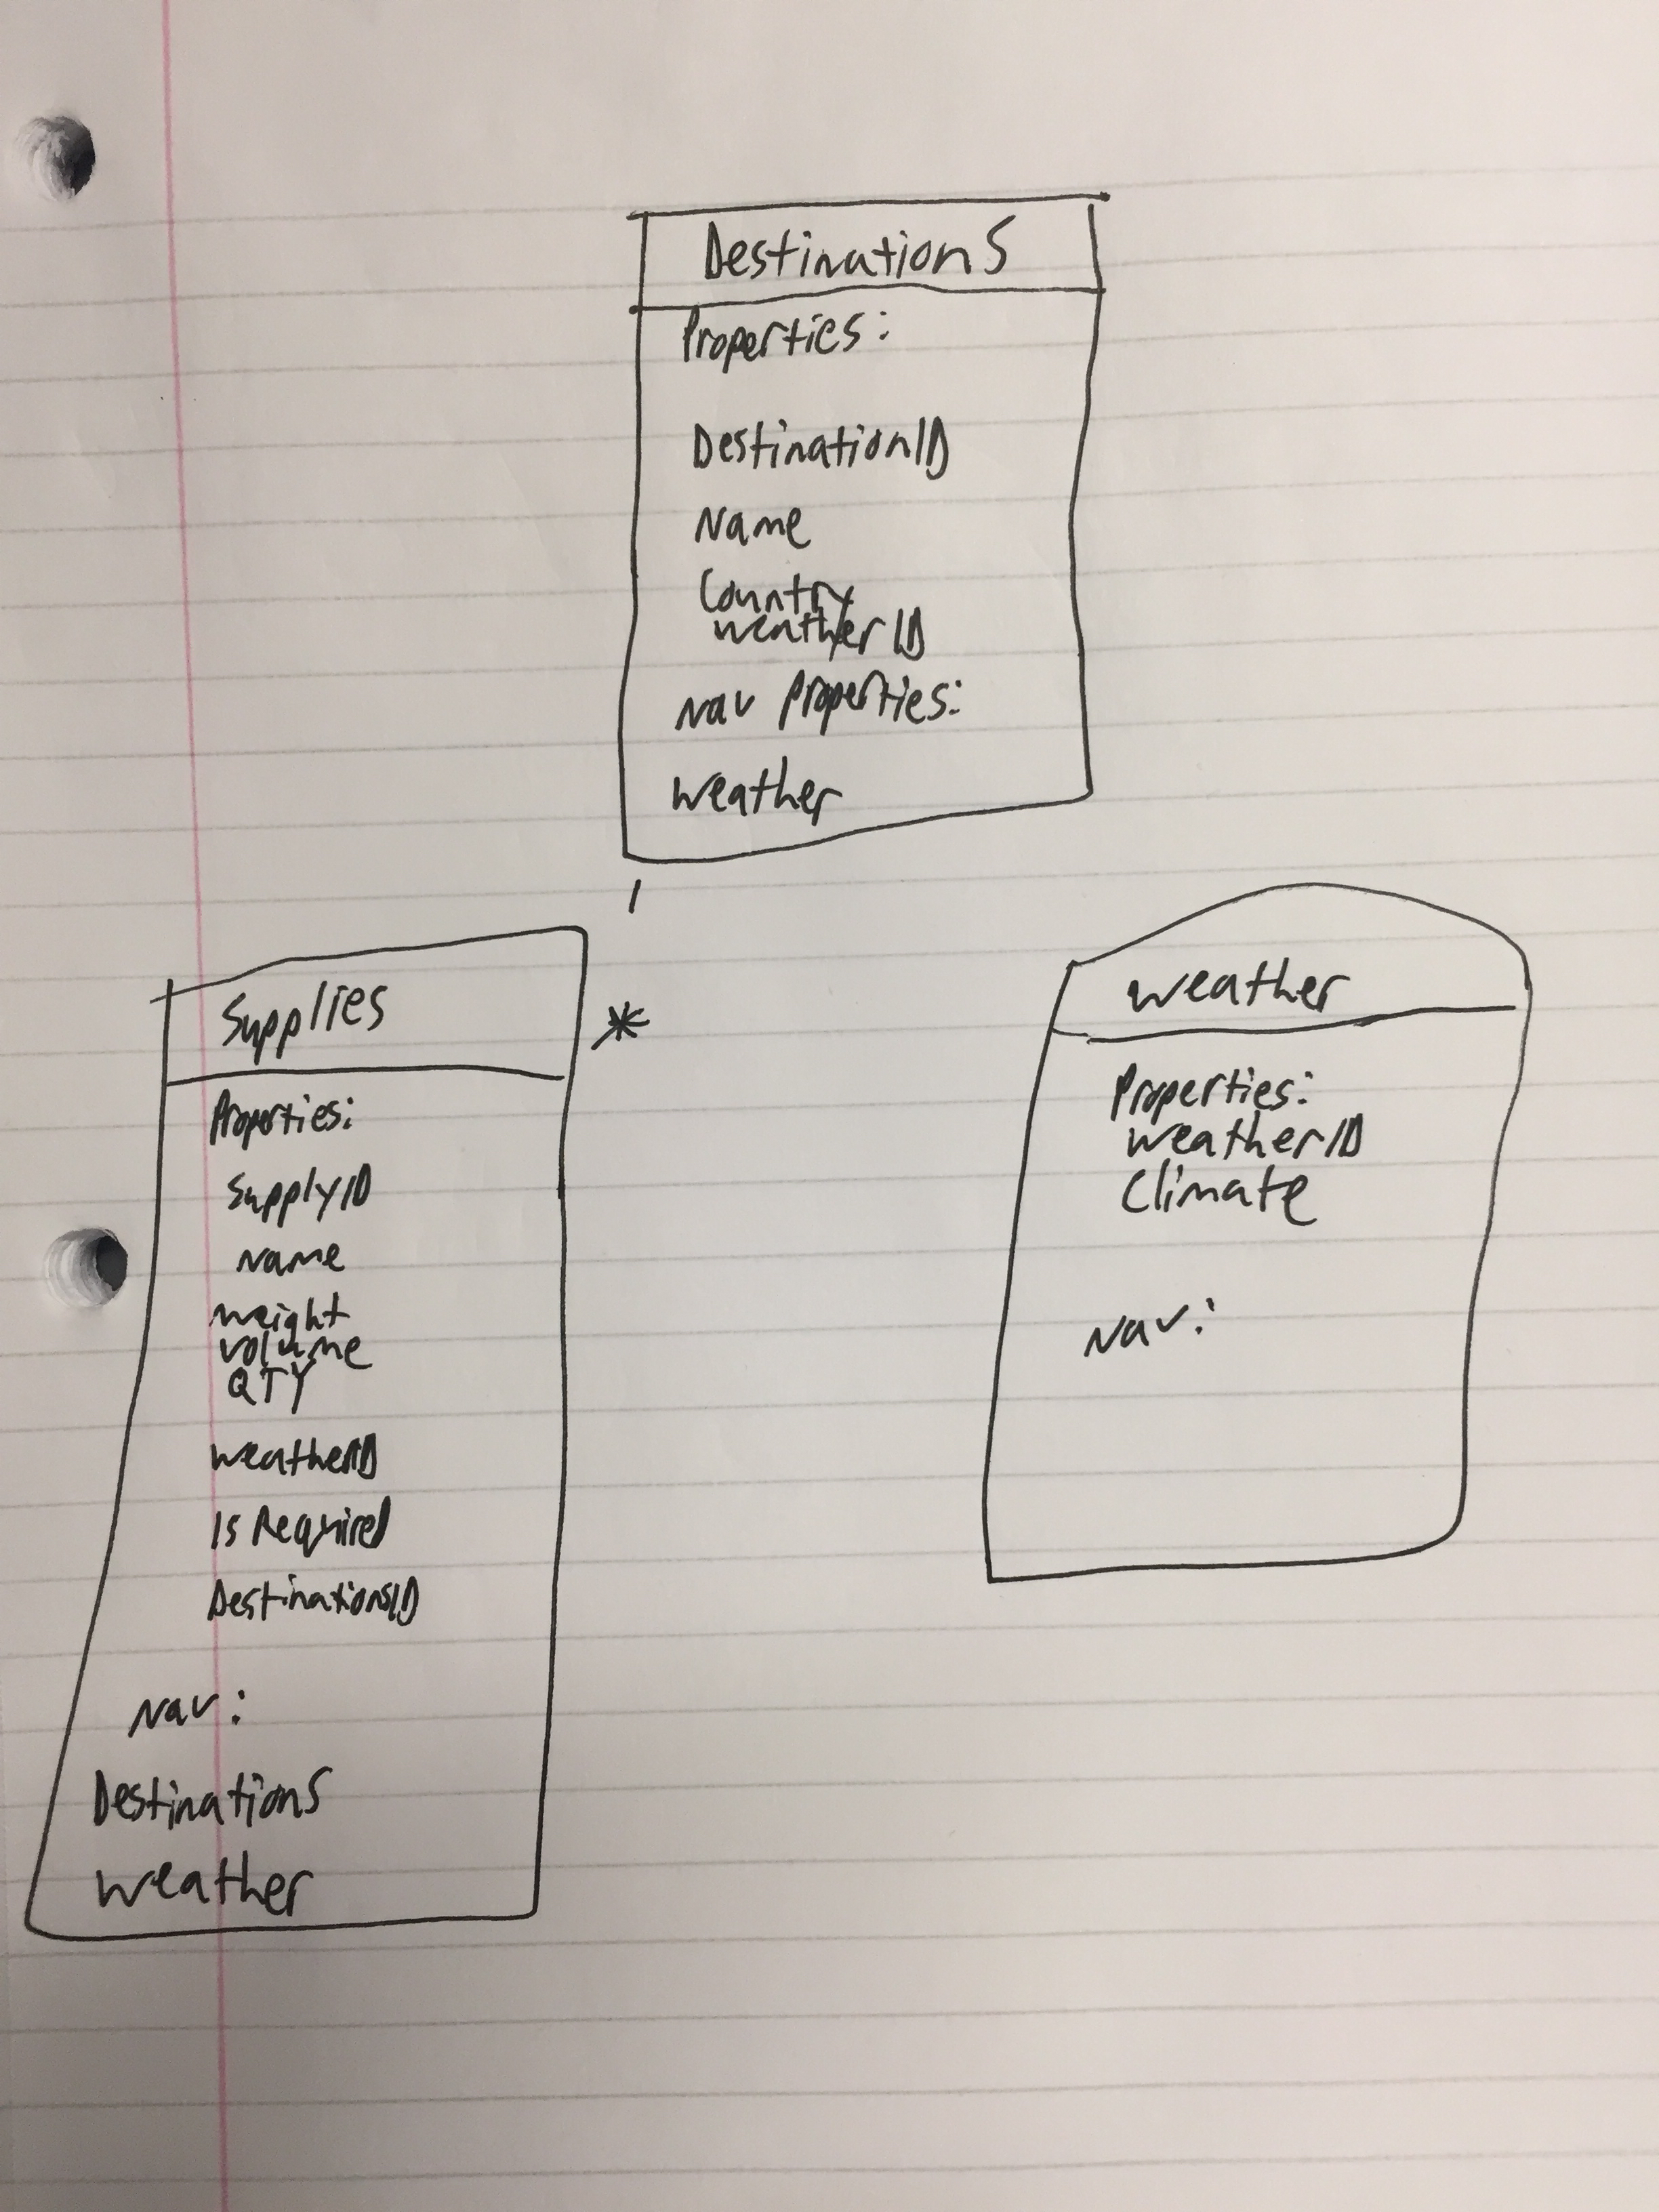 Destinations
Properties:
DestinationID
Name
Country
weatherID
Nav Properties:
Weather
1
Supplies
*
Properties:
SupplyID
Name
weight
volume
QTY
weatherID
Is Required
DestinationsID
Nav:
Destinations
weather
weather
Properties:
weatherID
Climate
Nav: